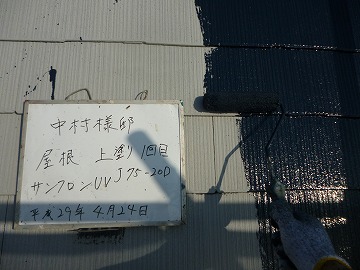 中村様邸
屋根 上塗り1回目
サンフロンUV J75-20D
平成29年4月24日